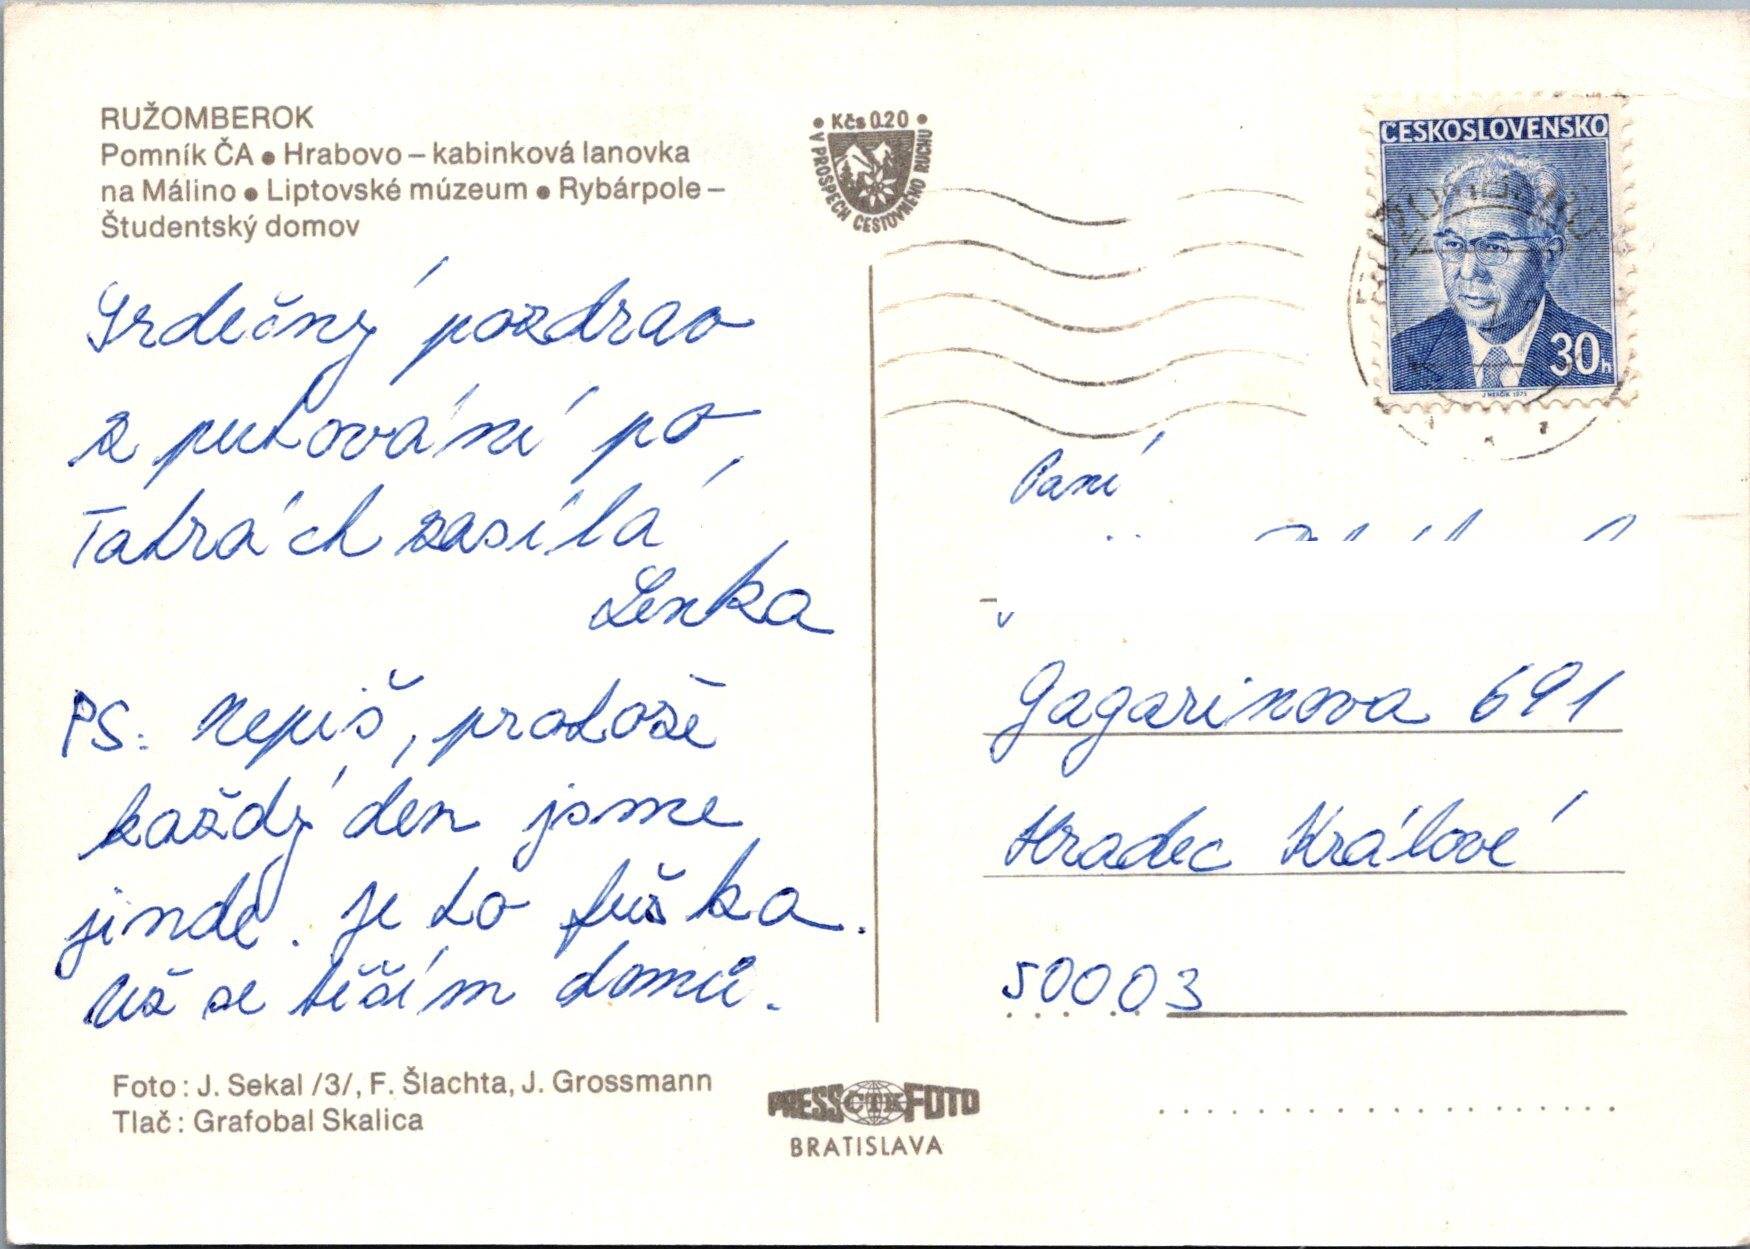 RUŽOMBEROK
Pomník ČA ● Hrabovo – kabinková lanovka
na Málino ● Liptovské múzeum ● Rybárpole –
Študentský domov
Srdečný pozdrav
z putování po
Tatrách zasílá
Lenka
PS: Nepiš, protože
každý den jsme
jinde. Je to fuška.
Už se těším domů.
Foto: J. Sekal /3/, F. Šlachta, J. Grossmann
Tlač: Grafobal Skalica
• Kčs 0.20 •
V PROSPECH CESTOVNÉHO RUCHU
PRESS ČTK FOTO
BRATISLAVA
ČESKOSLOVENSKO
30h
Paní
Gagarinova 691
Hradec Králové
50003